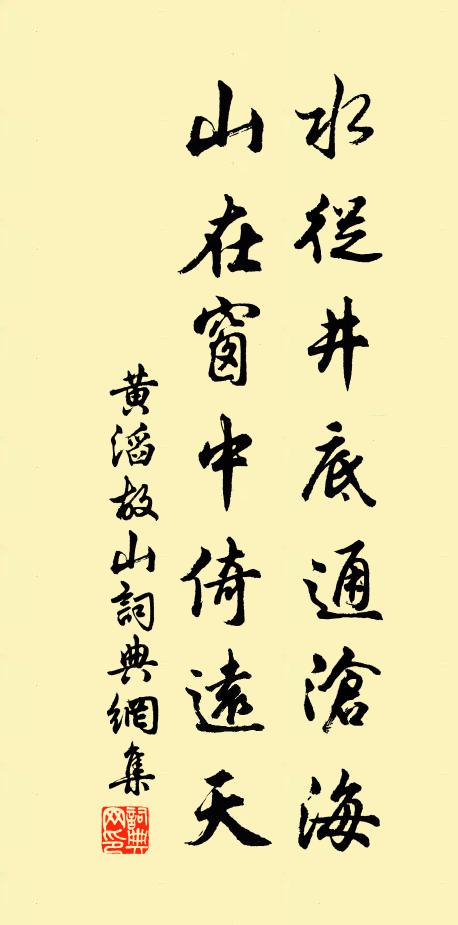 水從井底通滄海
山在窗中倚遠天
黃滔故山詞典網集
詞典網印